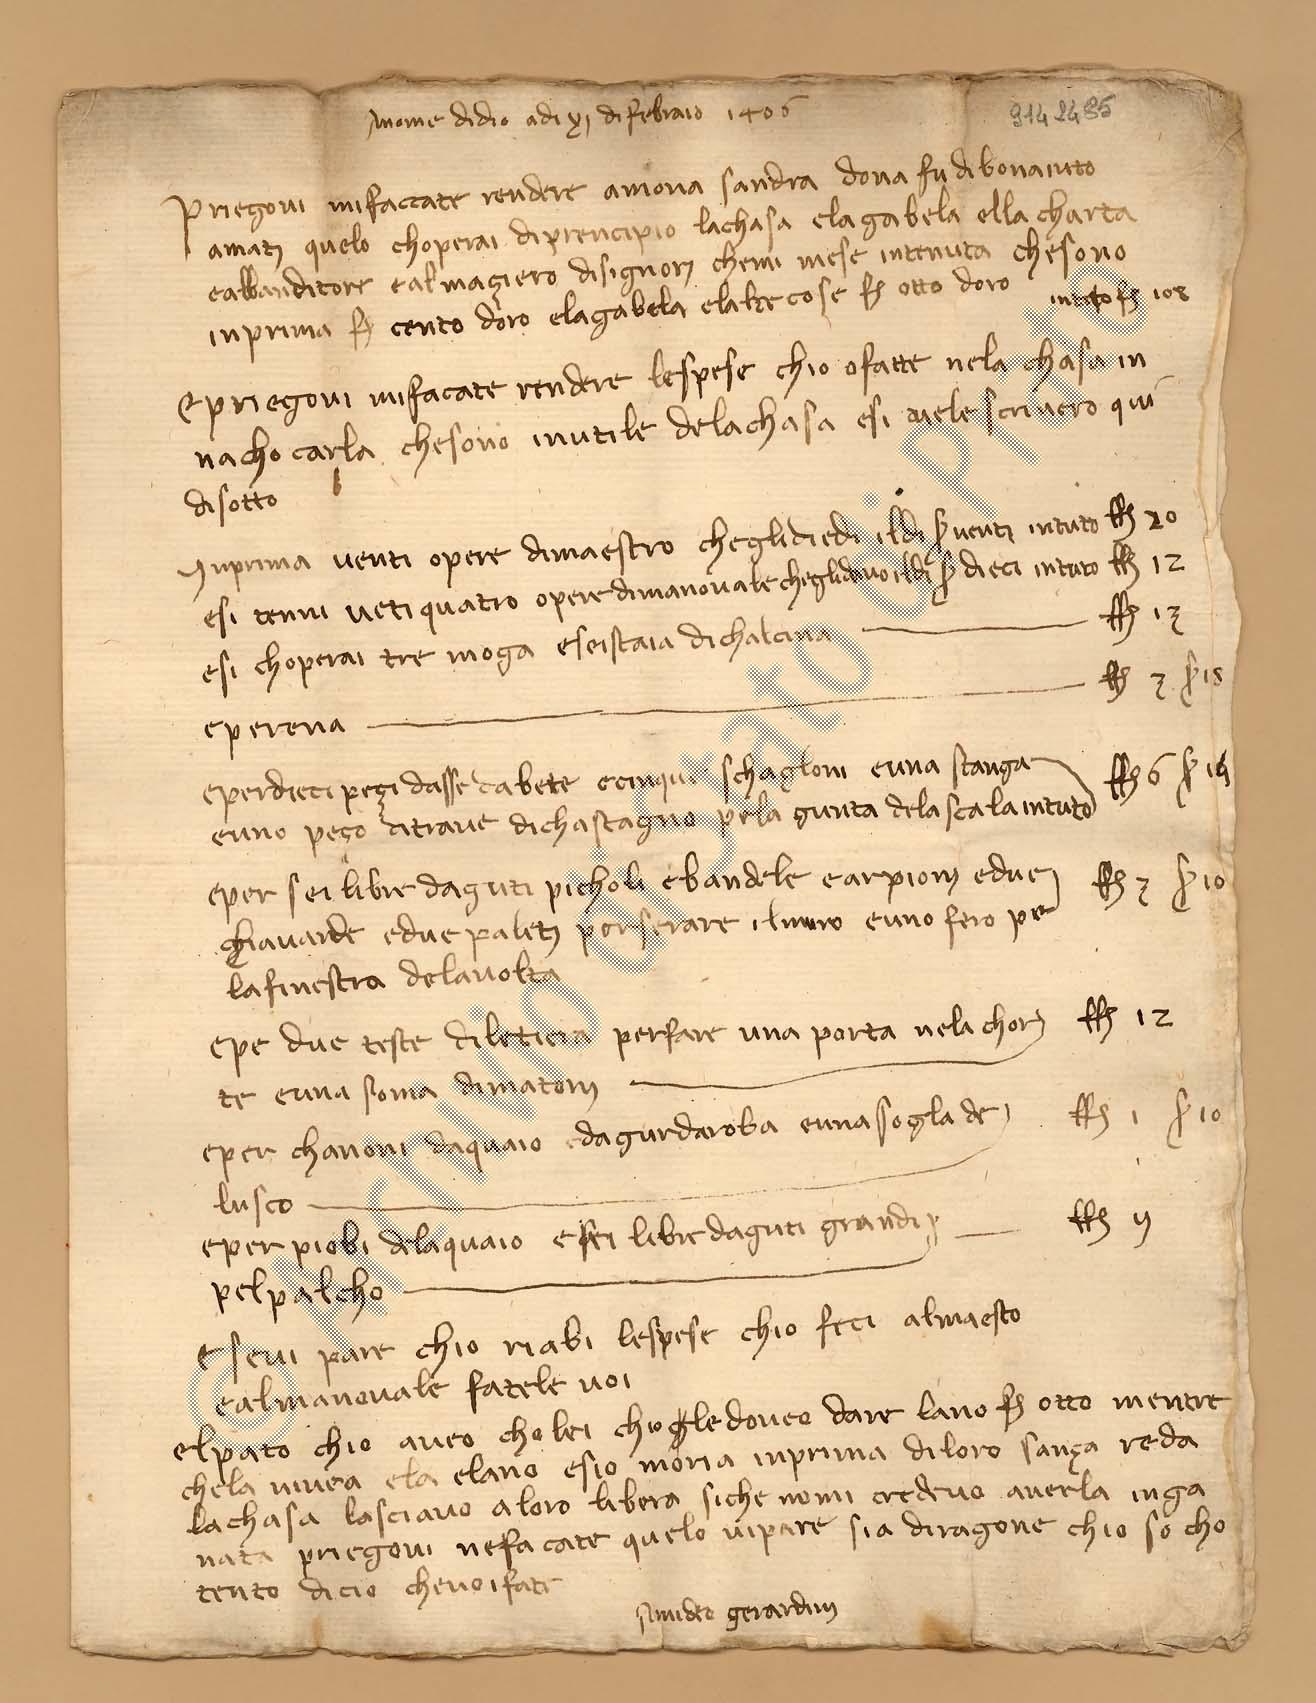 Al nome didio adi xj difebraio 1406
9142485
Priegovi mifacciate rendere amona sandra dona fu dibonaiuto
amatj quelo choperai diprencipio lachasa elagabela ella charta
ealbanditore ealmaçiero disignorj chemi mese intenuta chesono
inprima fj cento doro elagabela elaltre cose fj otto doro intuto fj 108
Epriegovi mifacate rendere lespese chio ofatte nela chasa in
nacho carla chesono inutile delachasa esi vele scrivero qui
disotto
Inprima venti opere dimaestro cheglidiedi ildi s venti intuto ll 20
esi tenni veti quatro opere dimanovale cheglidavo ildi s dieci intuto ll 12
esi choperai tre moga eseistaia dichalcina ll 13
eperena ll 3 s 18
eperdieci peçi dasse dabete ecinque schagloni euna stanga
euno peço ditrave dichastagno pela gunta delascala intuto ll 6 s 16
eper sei libre daguti picholi ebandele earpionj edue ll 3 s 10
chiavarde edue paletj per serare ilmuro euno fero pe
lafinestra delavolta
epe due teste diletiera perfare una porta nela chor ll 12
te euna soma dimatonj
eper chanoni daquaio edagurdaroba euna sogla de ll 1 s 10
lusco
eper piobi delaquaio esei libre daguti grandi ll ij
pelpalcho
esevi pare chio riabi lespese chio feci almaesto
ealmanovale fatele voi
elpato chio aveo cholei chiogledoveo dare lano fj otto mentre
chela vivea ela elano esio moria inprima diloro sança reda
lachasa lasciavo aloro libera siche nomi credevo averla inga
nata priegovi nefacate quelo vipare sia diragone chio so cho
tento dicio chevoifate
Amideo gerardinj
© Archivio di Stato di Prato